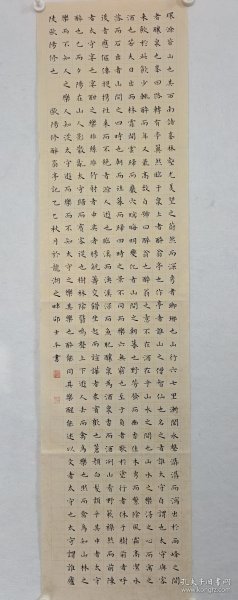 環滁皆山也其西南諸峯林壑尤美望之蔚然而深秀者瑯琊也山行六七里漸聞水聲潺潺而瀉出於兩峰之間
者釀泉也峯回路轉有亭翼然臨于泉上者醉翁亭也作亭者誰山之僧智仙也名之者誰太守自謂也太守與客
來飲於此飲少輒醉而年又最高故自號曰醉翁也醉翁之意不在酒在乎山水之間也山水之樂得之心而寓之
酒也若夫日出而林霏開雲歸而巖穴暝晦明變化者山間之朝暮也野芳發而幽香佳木秀而繁陰風霜高潔水
落而石出者山間之四時也朝而往暮而歸四時之景不同而樂亦無窮也至于負者歌於塗行者休于樹前者呼
後者應傴僂提攜往來而不絕者滁人遊也臨溪而漁溪深而魚肥釀泉爲酒泉香而酒洌山肴野蔌雜然而前陳
者太守宴也宴酣之樂非絲非竹射者中奕者勝觥籌交錯坐起而諠譁者衆賓歡也蒼顏白髮頹乎其中者太守
醉也已而夕陽在山人影散亂太守歸而賓客從也樹林陰翳鳴聲上下遊人去而禽鳥樂也然而禽鳥知山林之
樂而不知人之樂人知從太守遊而樂而不知太守之樂其樂也醉能同其樂醒能述以文者太守也太守謂誰廬
陵歐陽修也 歐陽修醉翁亭記乙巳秋月於龍湖之畔士平書
孔夫子旧书网